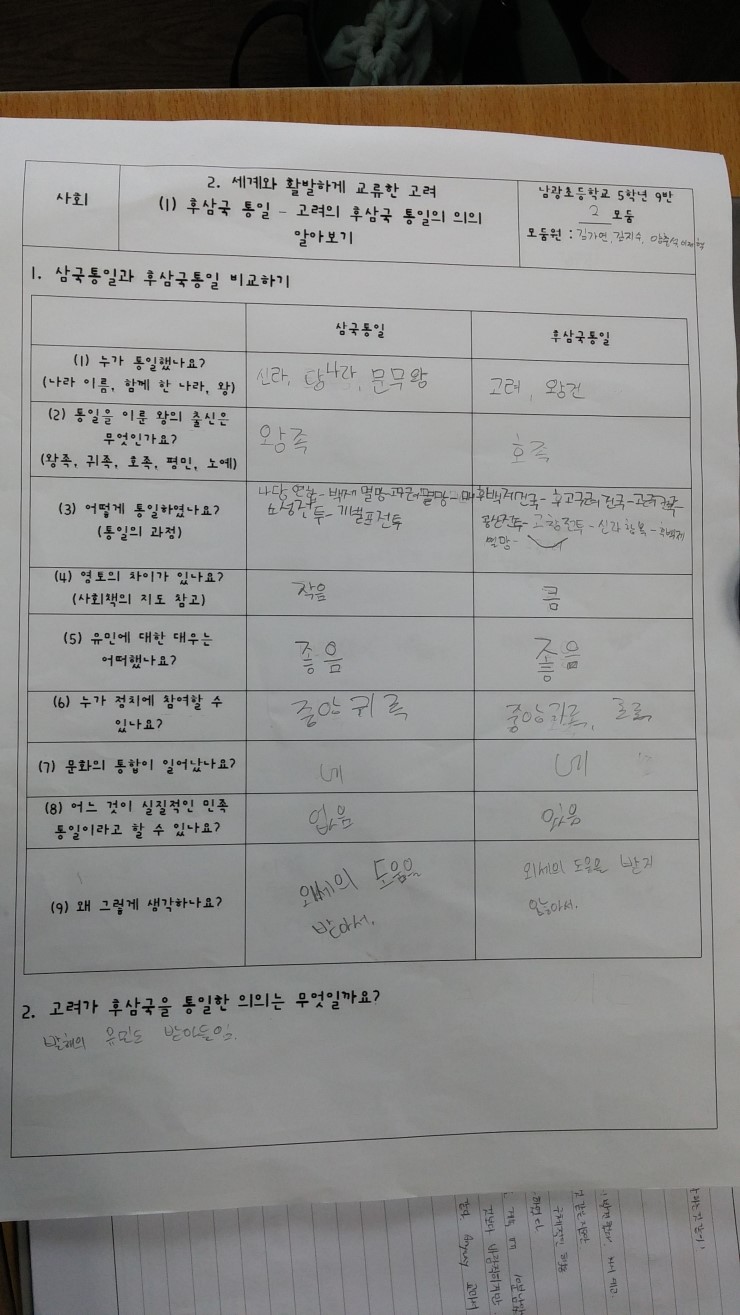 사회
2. 세계와 활발하게 교류한 고려
(1) 후삼국 통일 - 고려의 후삼국 통일의 의의
알아보기
남광초등학교 5학년 9반
2 모둠
모둠원 : 김가연,
1. 삼국통일과 후삼국통일 비교하기
삼국통일
후삼국통일
(1) 누가 통일했나요?
(나라 이름, 함께 한 나라, 왕)
신라, 당나라, 문무왕
고려, 왕건
(2) 통일을 이룬 왕의 출신은
무엇인가요?
(왕족, 귀족, 호족, 평민, 노예)
왕족
호족
(3) 어떻게 통일하였나요?
(통일의 과정)
나당 연합 - 백제 멸망 - 고구려 멸망 -
소성전투 - 기벌포전투
후백제건국 - 후고구려 건국 - 고려 건국 -
공산전투 - 고창전투 - 신라 항복 - 후백제
멸망 -
(4) 영토의 차이가 있나요?
(사회책의 지도 참고)
작음
큼
(5) 유민에 대한 대우는
어떠했나요?
좋음
좋음
(6) 누가 정치에 참여할 수
있나요?
중앙 귀족
중앙귀족, 호족
(7) 문화의 통합이 일어났나요?
네
네
(8) 어느 것이 실질적인 민족
통일이라고 할 수 있나요?
없음
있음
(9) 왜 그렇게 생각하나요?
왜세의 도움을
받아서.
외세의 도움을 받지
않아서.
2. 고려가 후삼국을 통일한 의의는 무엇일까요?
발해의 유민도 받아들임.